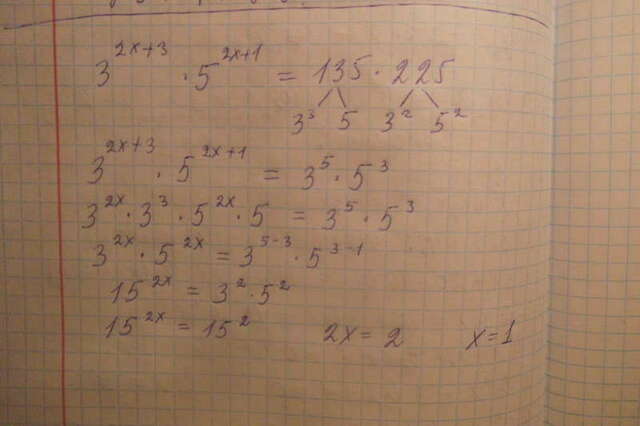 3^{2x+3} · 5^{2x+1} = 135 · 225
3³ 5 3² 5²
3^{2x+3} · 5^{2x+1} = 3⁵ · 5³
3^{2x} · 3³ · 5^{2x} · 5 = 3⁵ · 5³
3^{2x} · 5^{2x} = 3^{5-3} · 5^{3-1}
15^{2x} = 3² · 5²
15^{2x} = 15² 2x = 2 x=1